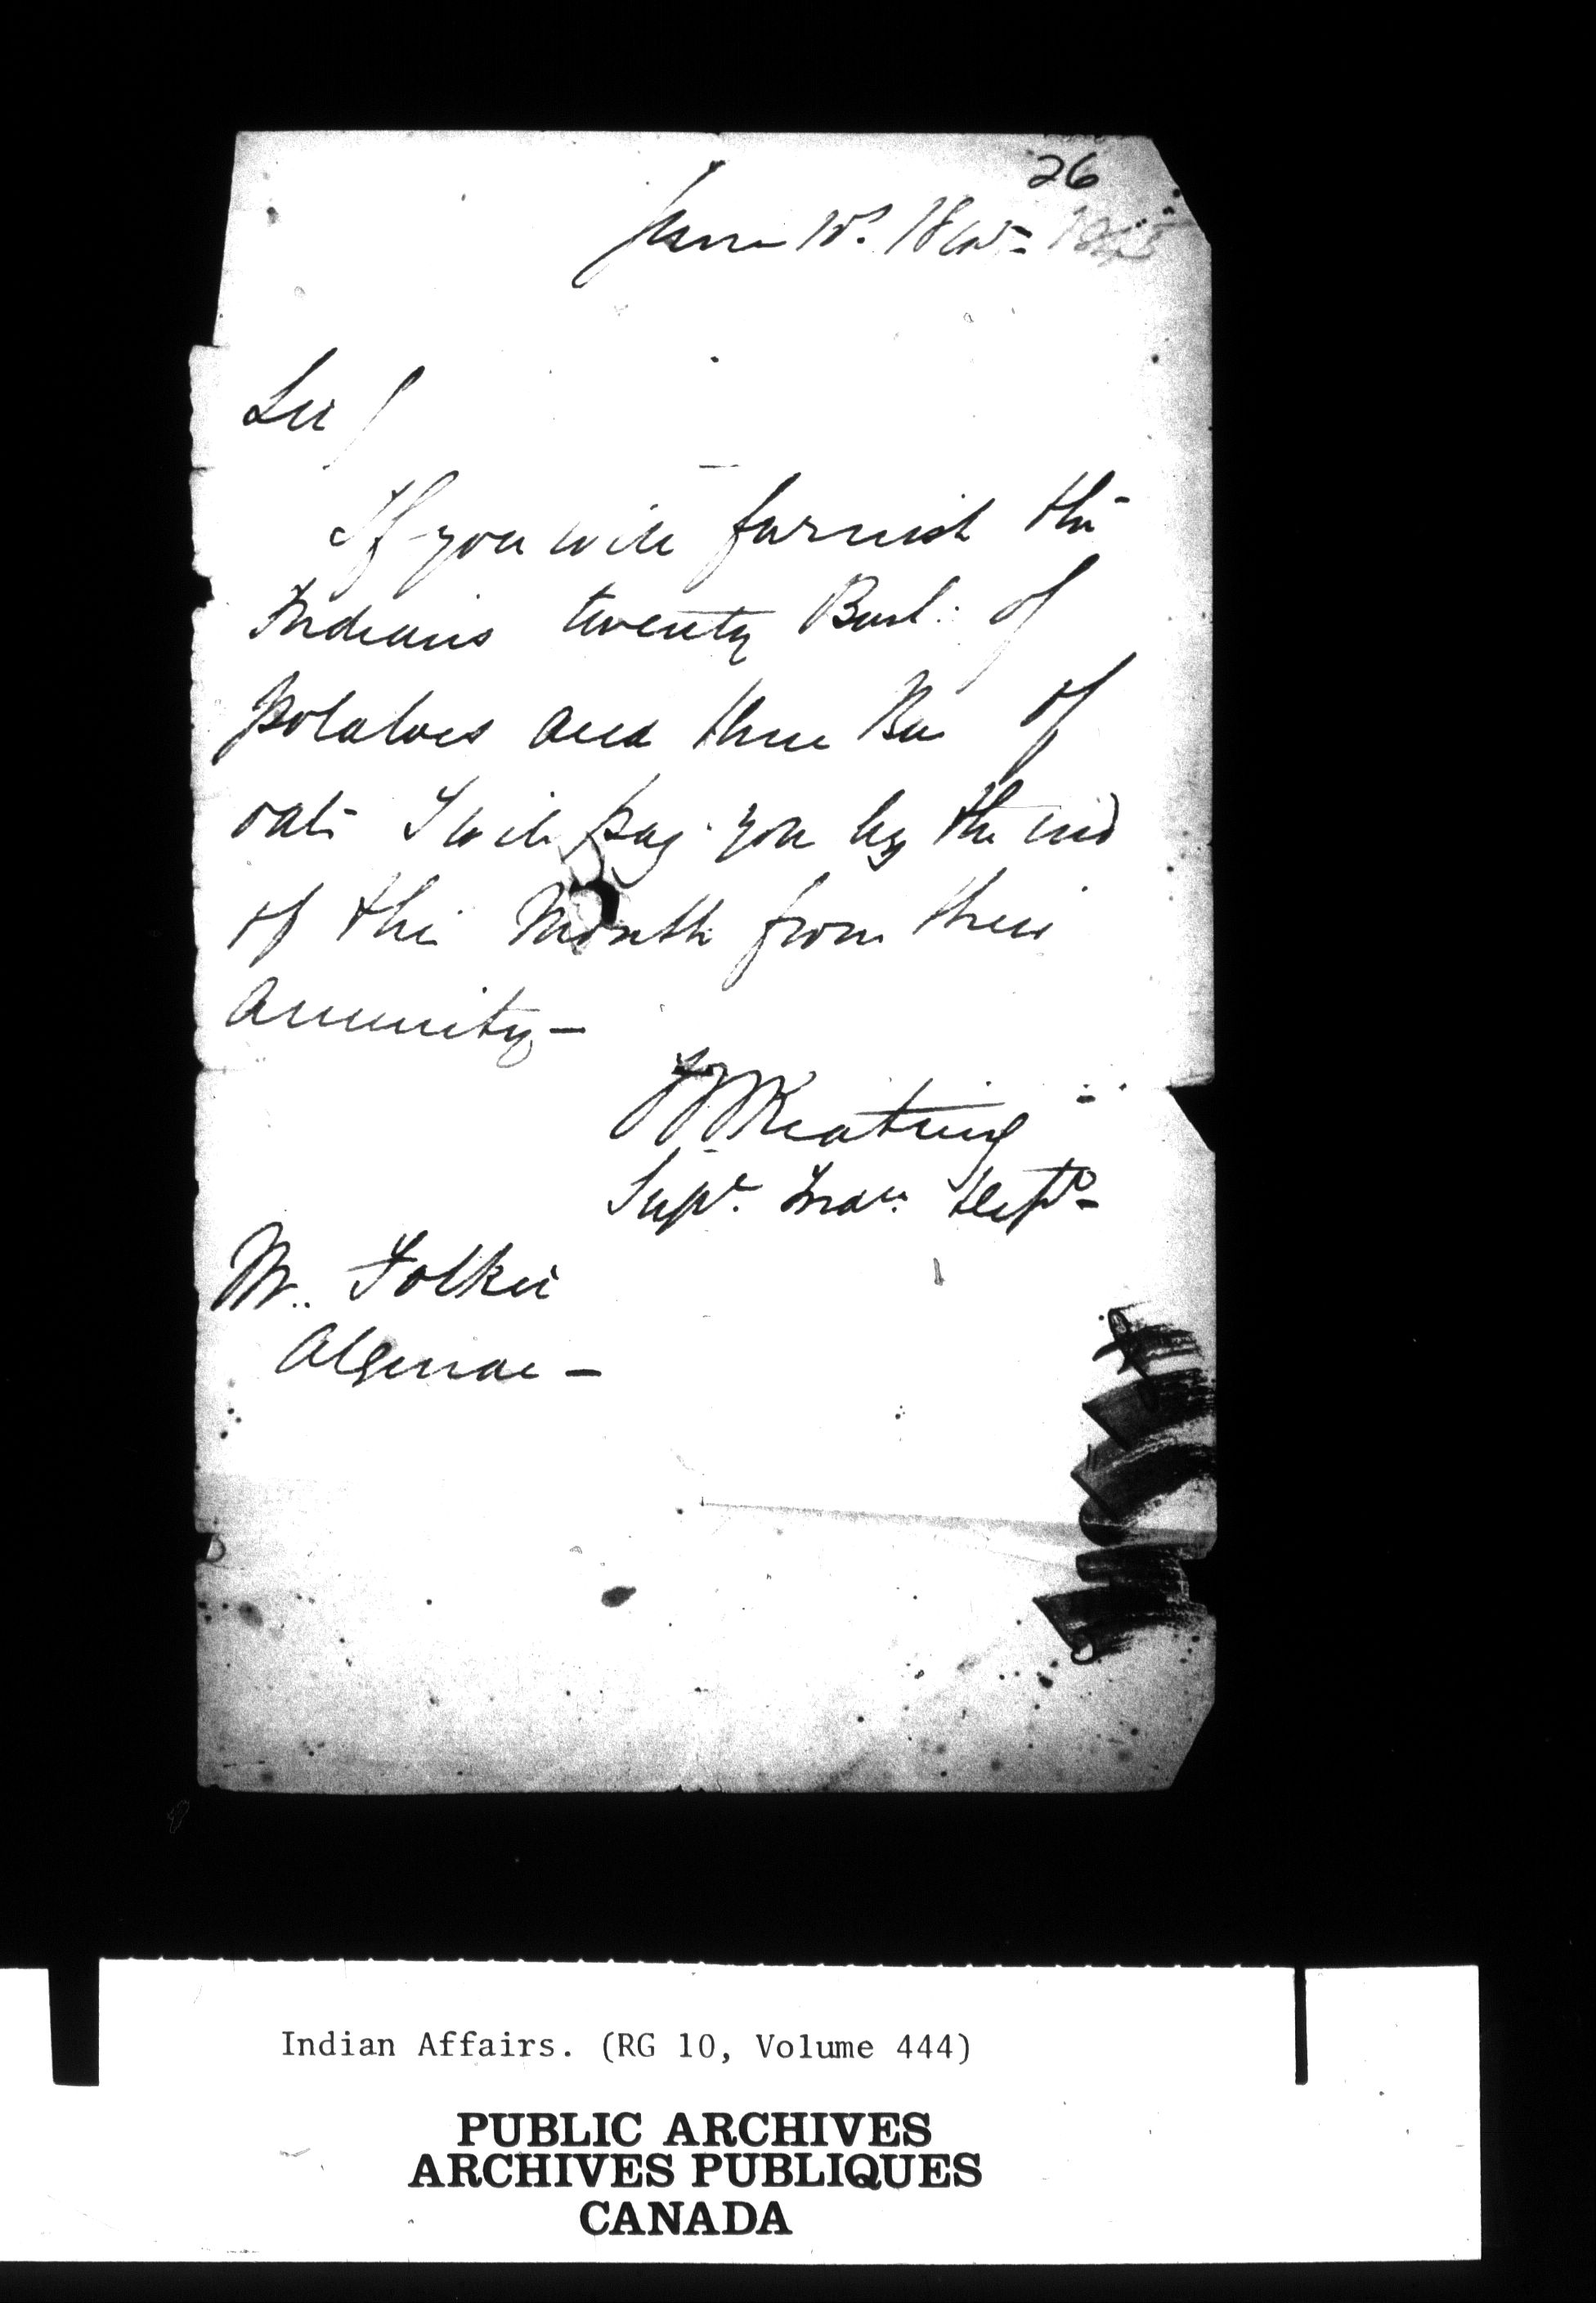 26
June 10th. 1845 - 1845
Sir/
If you will furnish the
Indians twenty Bush: of
potatoes and three Bu of
oats I will pay you by the end
of this Month from their
Annuity -
JW Keating
Supt. Indn. Dept -
Mr. Folker
Algonac -
Indian Affairs. (RG 10, Volume 444)
PUBLIC ARCHIVES
ARCHIVES PUBLIQUES
CANADA